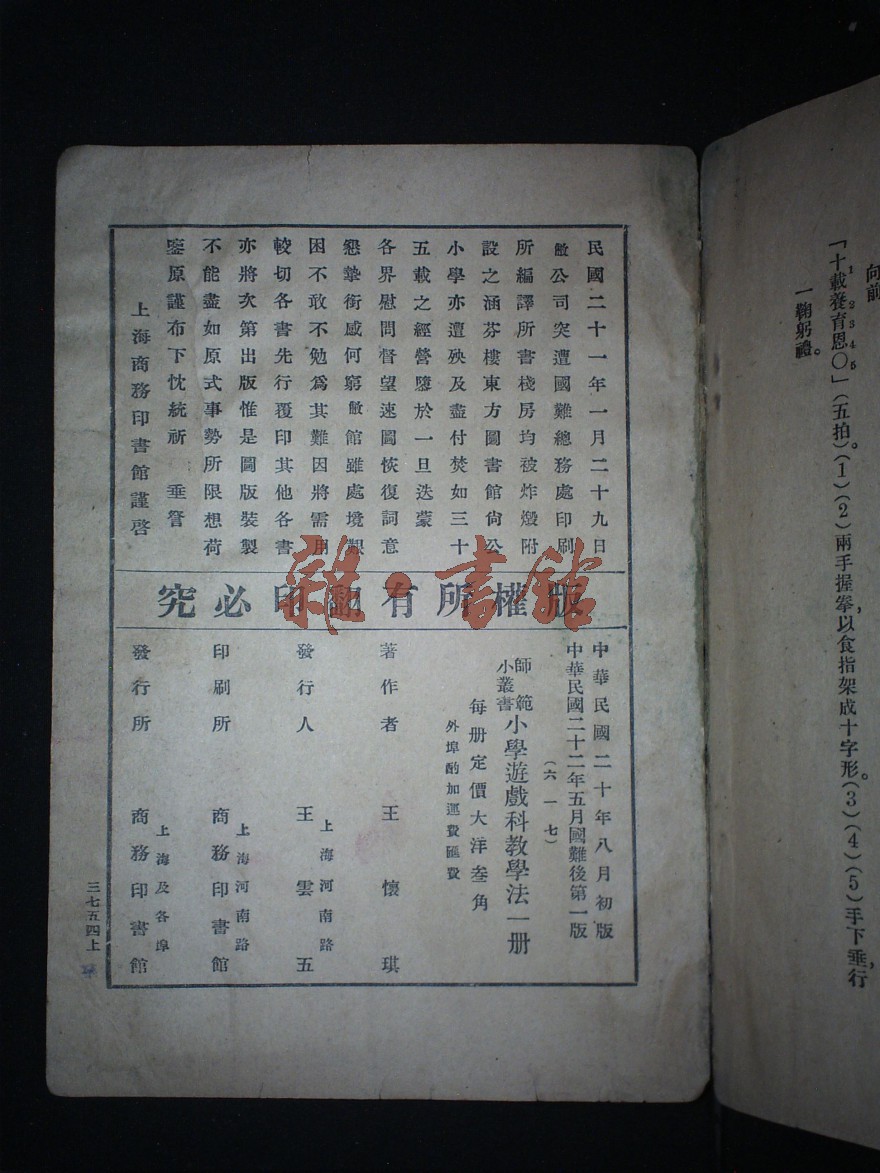 向前
「十載養育恩〇」(五拍)(1)(2)兩手握拳,以食指架成十字形。(3)(4)(5)手下垂行
1 2 3 4 5
一鞠躬禮。
民國二十一年一月二十九日
敝公司突遭國難總務處印刷
所編譯所書棧房均被炸燬附
設之涵芬樓東方圖書館尙公
小學亦遭殃及盡付焚如三十
五載之經營隳於一旦迭蒙
各界慰問督望速圖恢復詞意
懇摯銜感何窮敝館雖處境艱
困不敢不勉爲其難因將需用
較切各書先行覆印其他各書
亦將次第出版惟是圖版裝製
不能盡如原式事勢所限想荷
鑒原謹布下忱統祈 垂詧
上海商務印書館謹啓
版權所有翻印必究
雜·書館
中華民國二十年八月初版
中華民國二十二年五月國難後第一版
(六一七)
師範小叢書
小學遊戲科敎學法一册
每册定價大洋叁角
外埠酌加運費匯費
著作者 王懷琪
上海河南路
發行人 王雲五
上海河南路
印刷所 商務印書館
上海及各埠
發行所 商務印書館
三七五四上